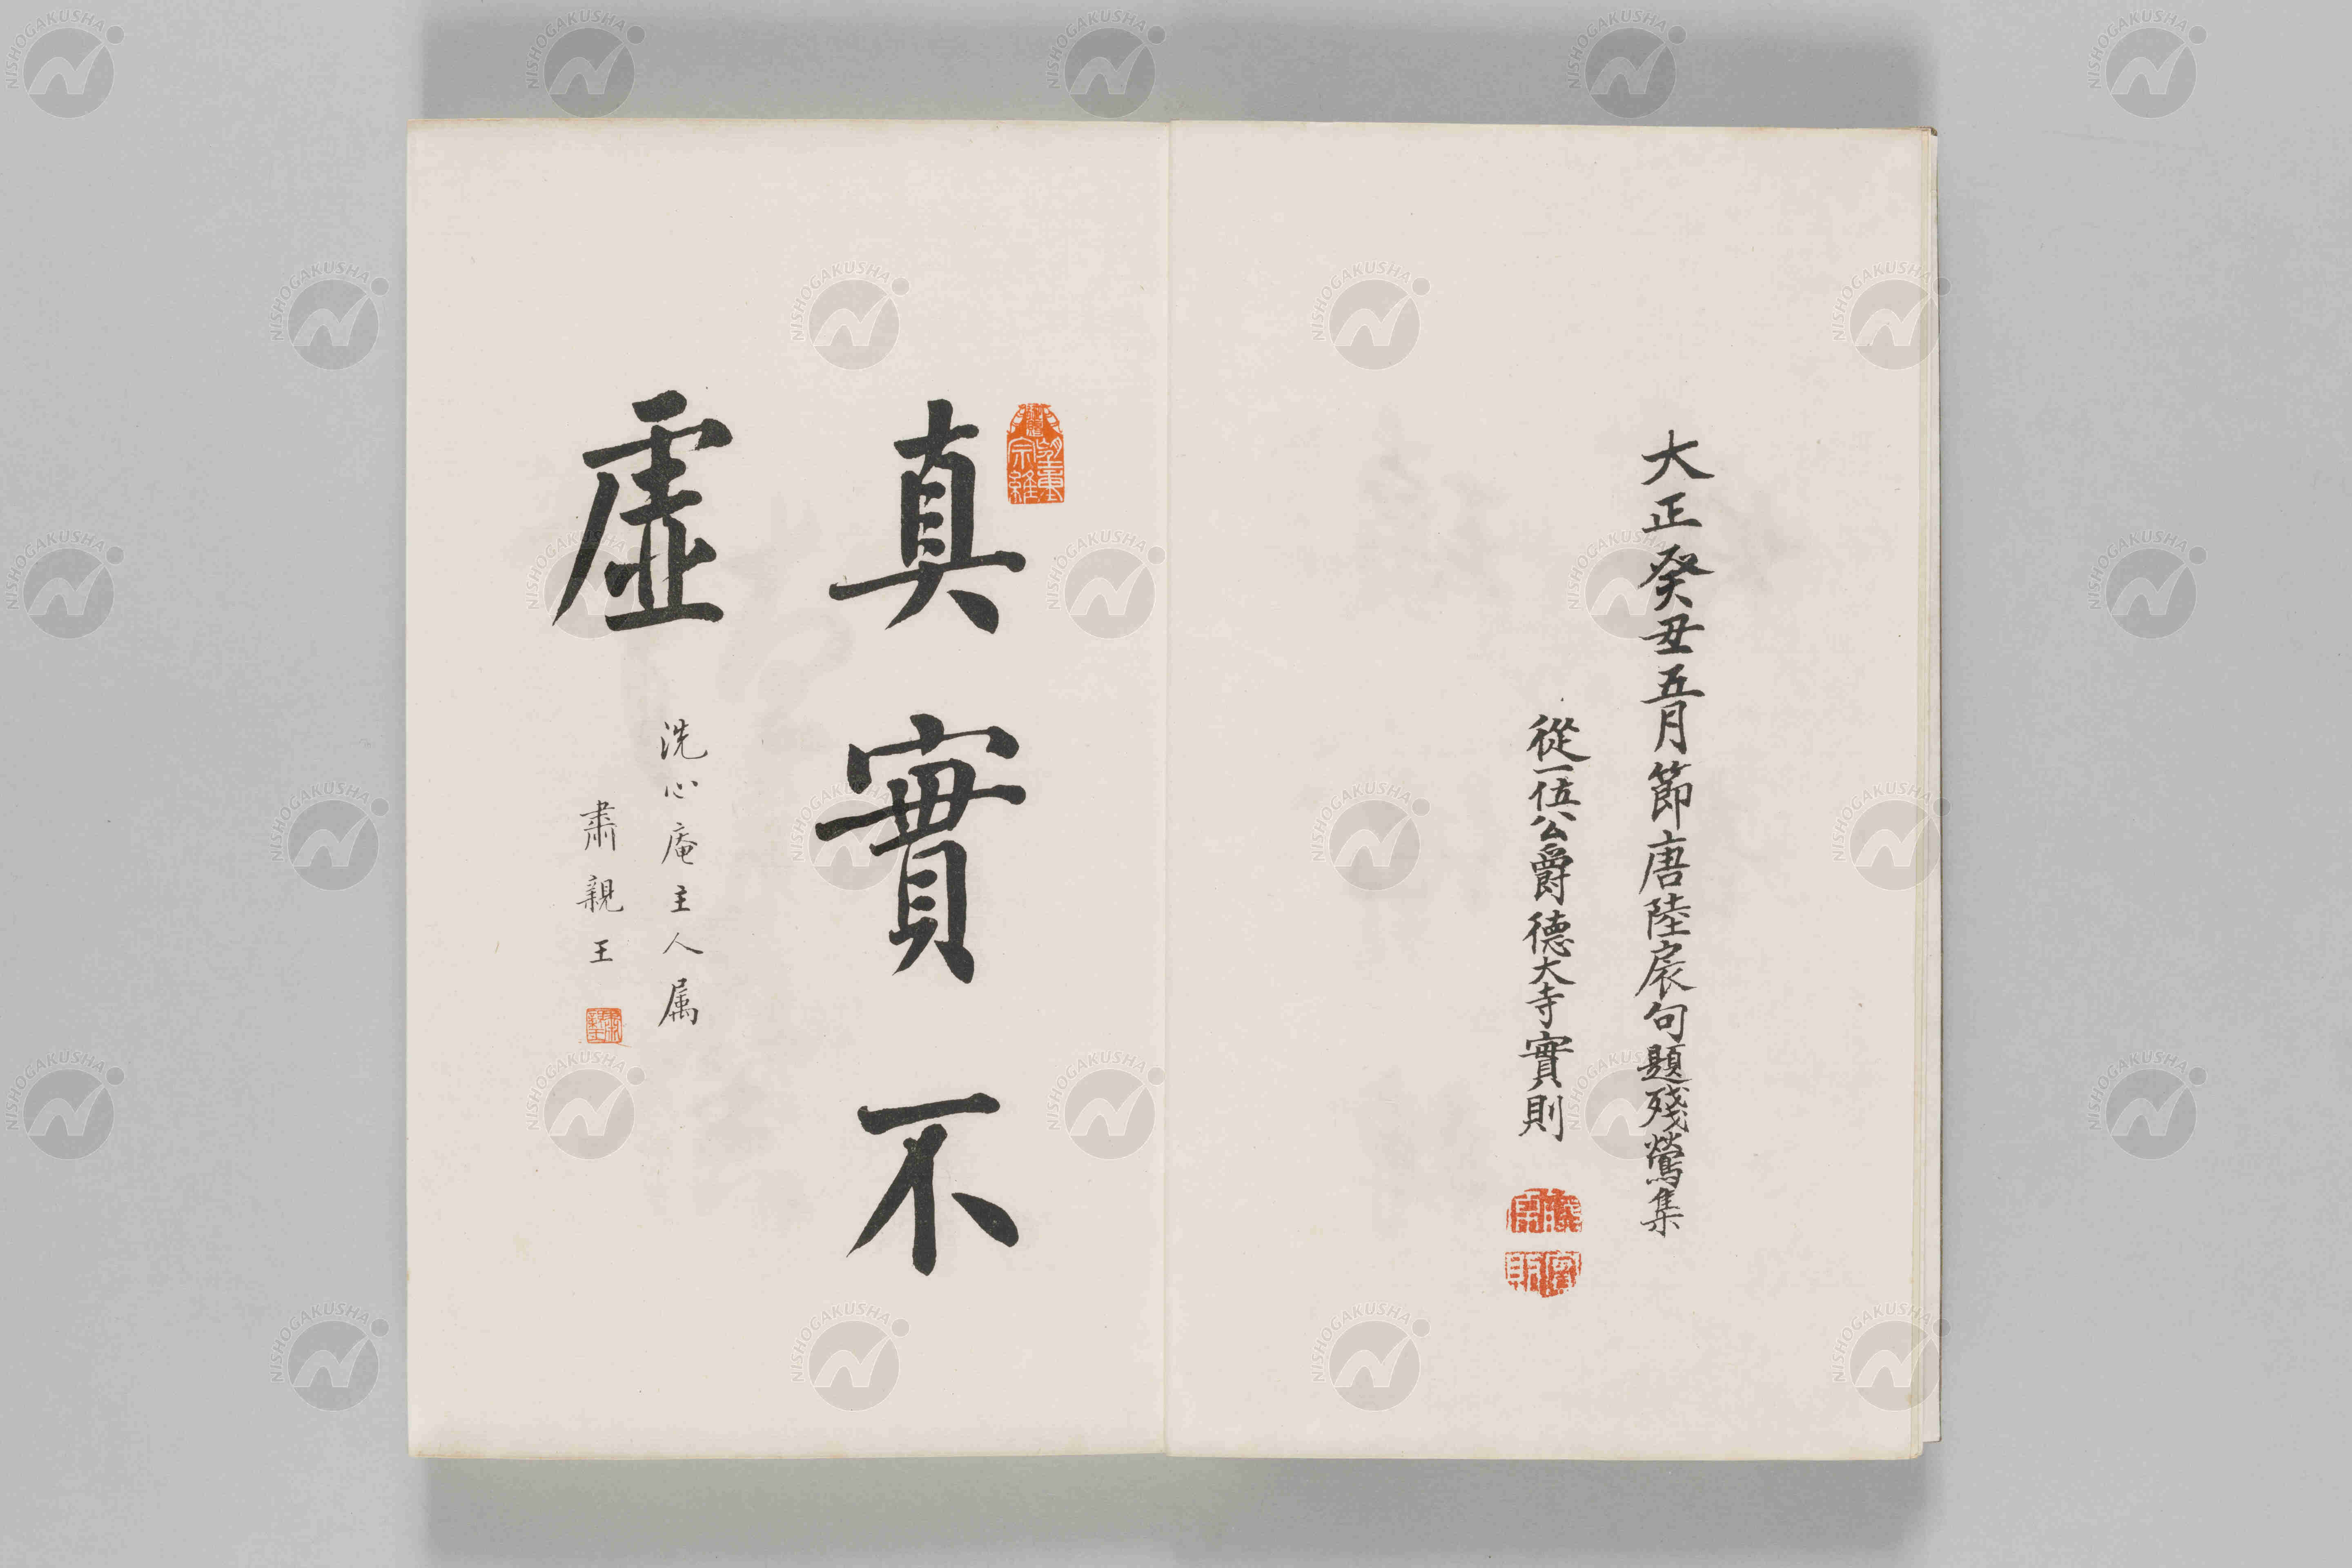 大正癸丑五月節唐陸扆句題殘鶯集
從一位公爵德大寺實則
真實不
虛
洗心庵主人属
肅親王
NISHOGAKUSHA